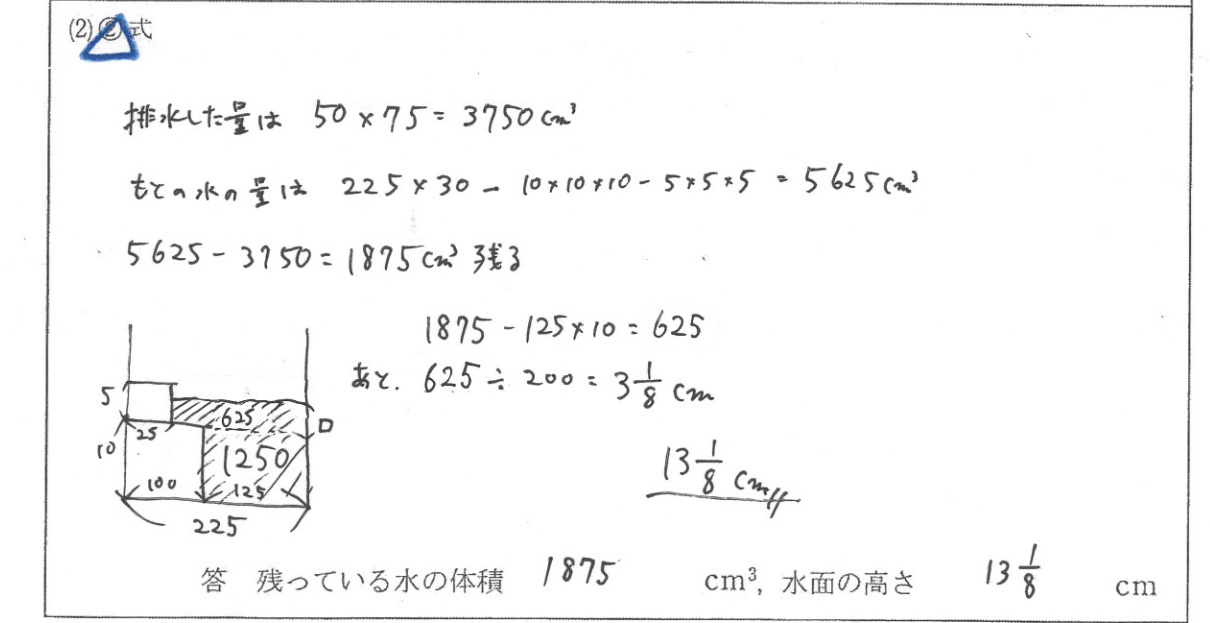 (2)②式
排水した量は 50×75=3750cm³
もとの水の量は 225×30-10×10×10-5×5×5=5625cm³
5625-3750=1875cm³ 残る
1875-125×10=625
あと. 625÷200=3 1/8 cm
5
25
625
□
10
1250
100
125
225
13 1/8 cm
答 残っている水の体積 1875 cm³, 水面の高さ 13 1/8 cm